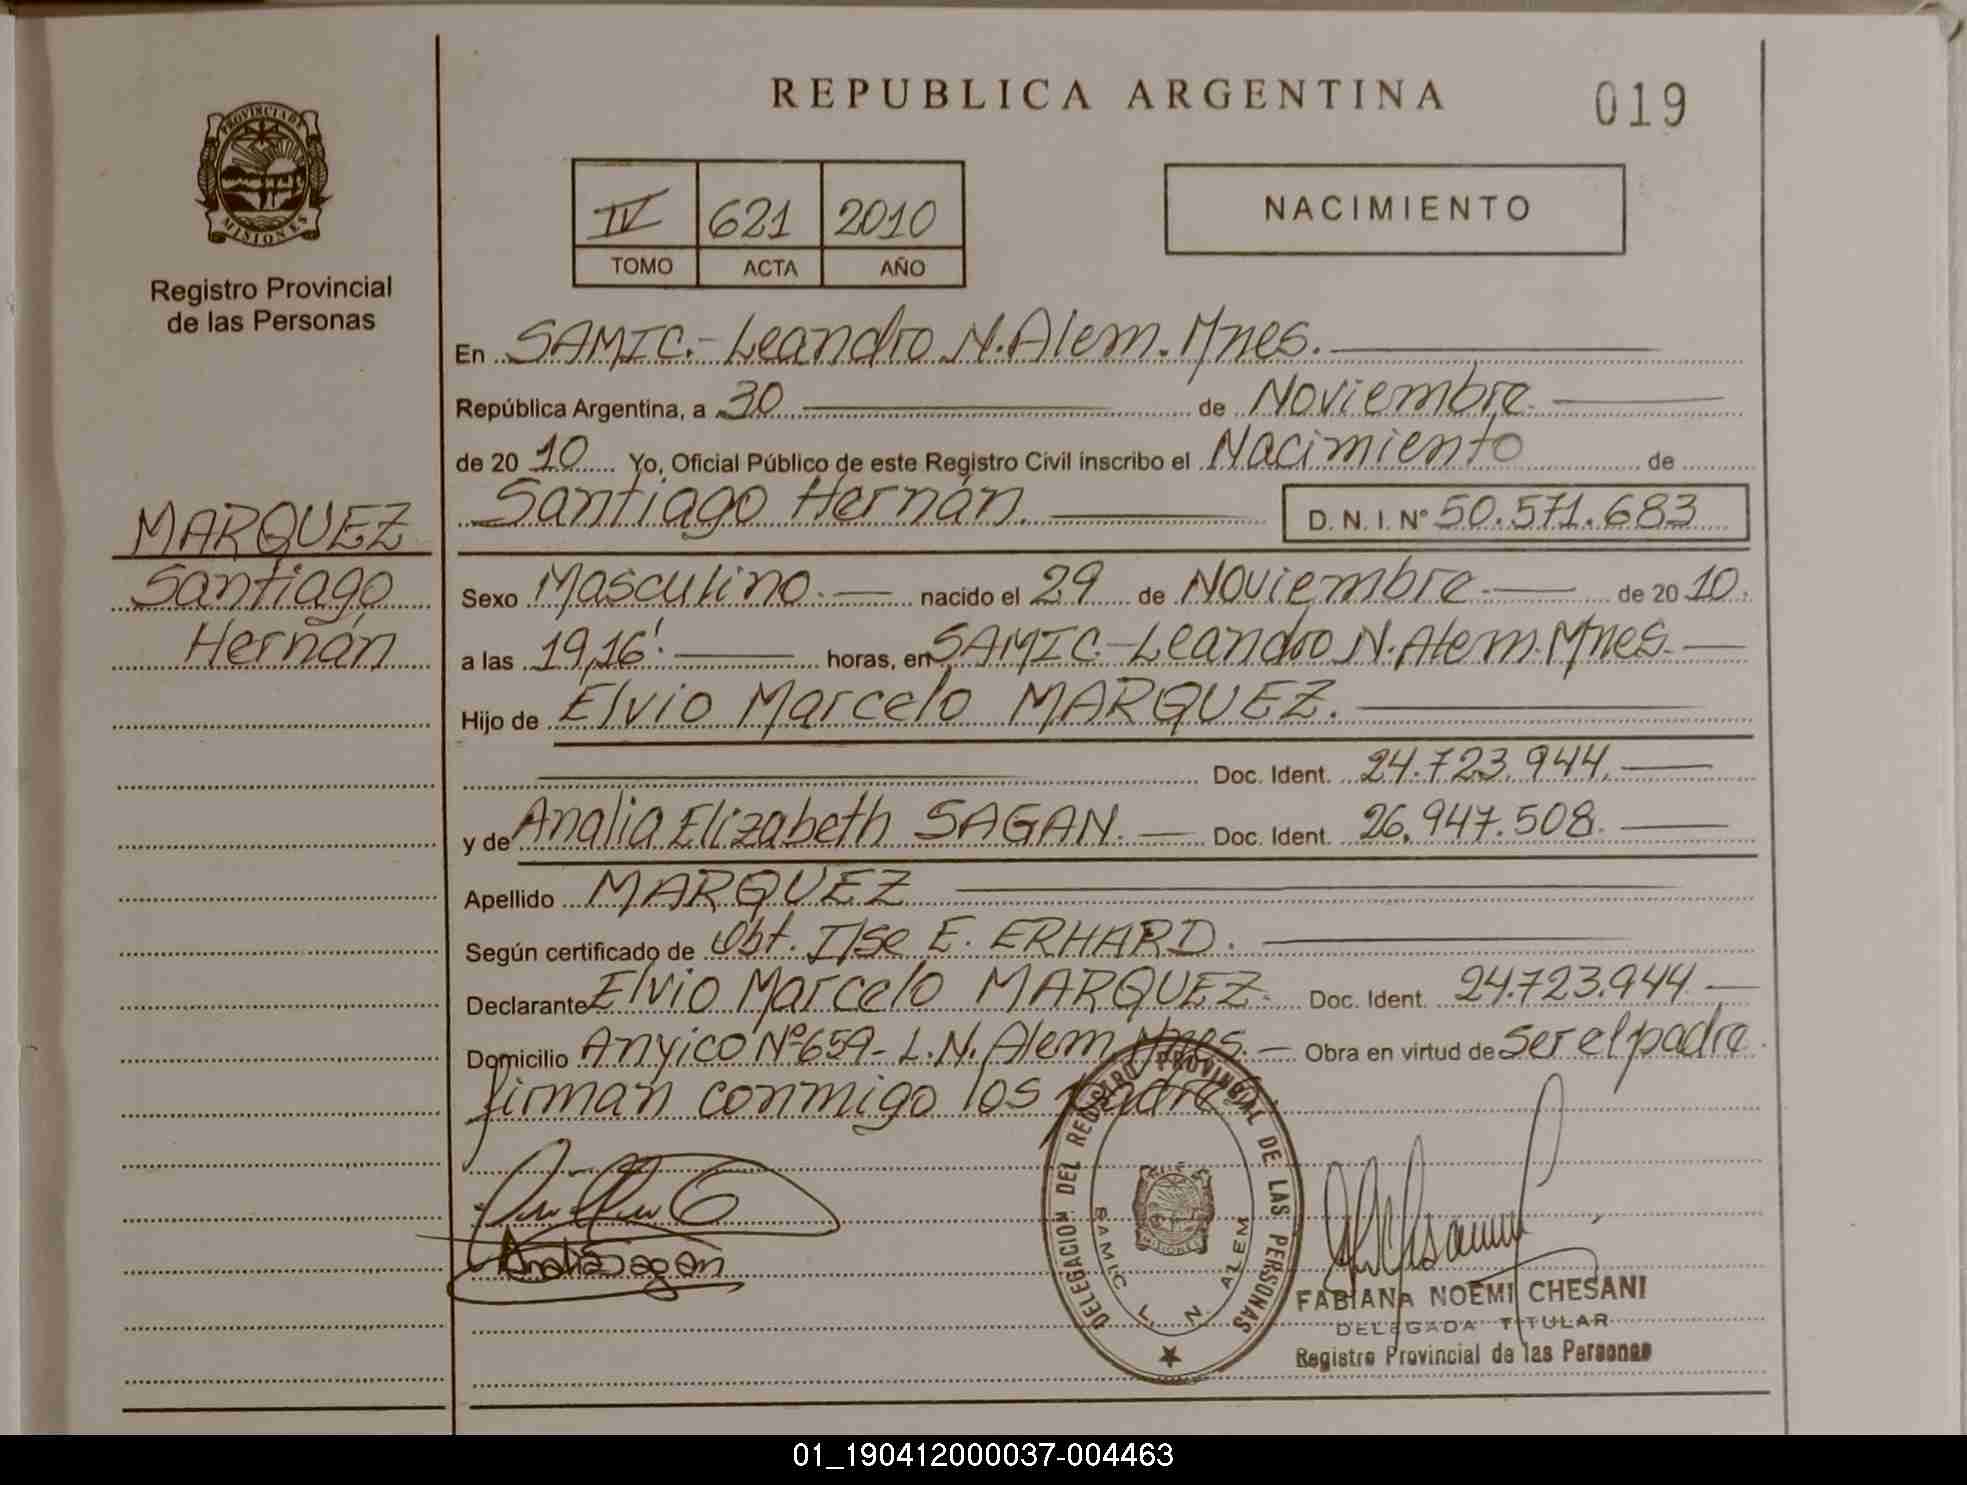 REPUBLICA ARGENTINA
019
PROVINCIA DE MISIONES
Registro Provincial
de las Personas
IV 621 2010
TOMO ACTA AÑO
NACIMIENTO
En SAMIC.- Leandro N. Alem. Mnes.
República Argentina, a 30 de Noviembre.
de 2010 Yo, Oficial Público de este Registro Civil inscribo el Nacimiento de
Santiago Hernán. D. N. I. N° 50.571.683
MARQUEZ
Santiago
Hernán
Sexo Masculino. nacido el 29 de Noviembre. de 2010.
a las 19,16'. horas, en SAMIC.- Leandro N. Alem. Mnes.
Hijo de Elvio Marcelo MARQUEZ.
Doc. Ident. 24.723.944.
y de Analia Elizabeth SAGAN. Doc. Ident. 26.947.508.
Apellido MARQUEZ
Según certificado de Obt. Ilse E. ERHARD.
Declarante Elvio Marcelo MARQUEZ. Doc. Ident. 24.723.944
Domicilio Anyico Nº 659- L.N. Alem Mnes. Obra en virtud de ser el padre.
firman conmigo los padre
Analia Sagan
DELEGACION DEL REGISTRO PROVINCIAL DE LAS PERSONAS
SAMIC L. N. ALEM
MISIONES
FABIANA NOEMI CHESANI
DELEGADA TITULAR
Registro Provincial de las Personas
01_190412000037-004463